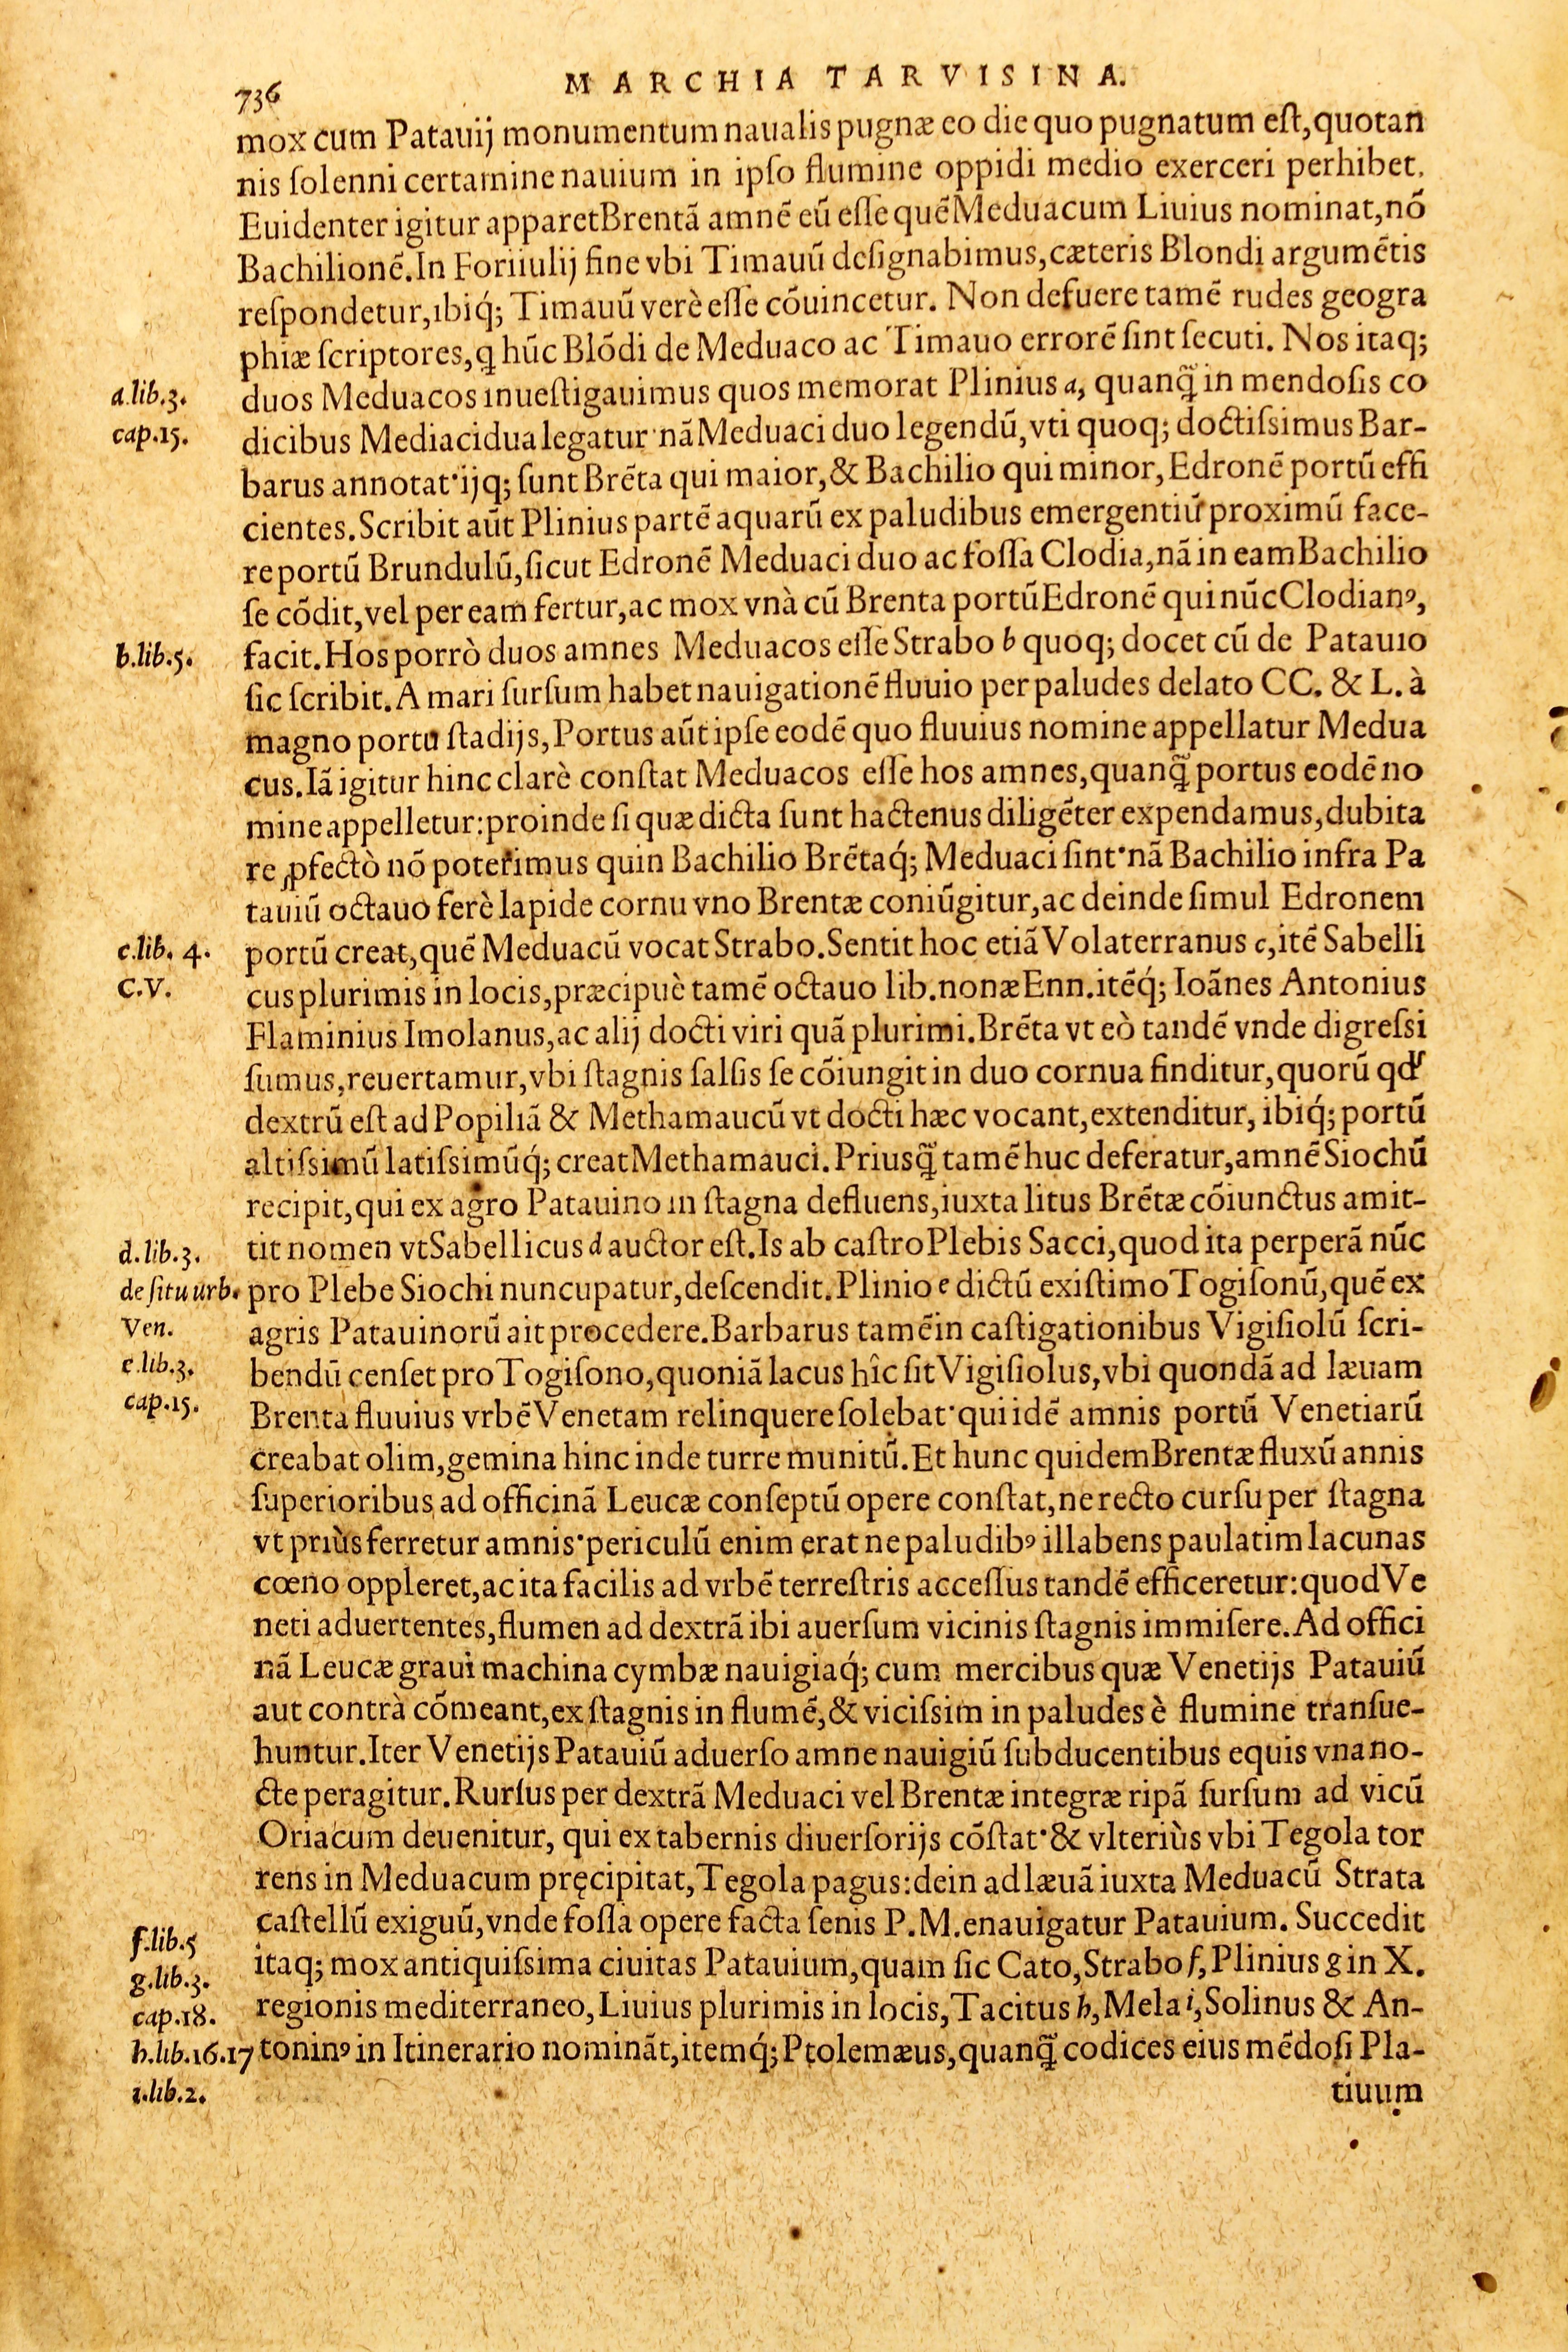 736
MARCHIA TARVISINA.
mox cum Patauij monumentum naualis pugnæ eo die quo pugnatum eſt,quotan
nis ſolenni certamine nauium in ipſo flumine oppidi medio exerceri perhibet.
Euidenter igitur apparet Brentā amnē eū eſſe quē Meduacum Liuius nominat,nō
Bachilionē.In Foriiulij fine vbi Timauū deſignabimus,cæteris Blondi argumētis
reſpondetur,ibiq́; Timauū verè eſſe cōuincetur. Non defuere tamē rudes geogra
phiæ ſcriptores,q hūc Blōdi de Meduaco ac Timauo errorē ſint ſecuti. Nos itaq;
a.lib.3.
duos Meduacos inueſtigauimus quos memorat Plinius a, quanq̃ in mendoſis co
cap.15.
dicibus Mediacidua legatur·nā Meduaci duo legendū,vti quoq; doctiſsimus Bar-
barus annotat·ijq; ſunt Brēta qui maior,& Bachilio qui minor,Edronē portū effi
cientes.Scribit aūt Plinius partē aquarū ex paludibus emergentiū proximū face-
re portū Brundulū,ſicut Edronē Meduaci duo ac foſſa Clodia,nā in eam Bachilio
ſe cōdit,vel per eam fertur,ac mox vnà cū Brenta portū Edronē qui nūc Clodianꝰ,
b.lib.5.
facit.Hos porrò duos amnes Meduacos eſſe Strabo b quoq; docet cū de Patauio
ſic ſcribit.A mari ſurſum habet nauigationē fluuio per paludes delato CC. & L. à
magno portu ſtadijs,Portus aūt ipſe eodē quo fluuius nomine appellatur Medua
cus.Iā igitur hinc clarè conſtat Meduacos eſſe hos amnes,quanq̃ portus eodē no
mine appelletur:proinde ſi quæ dicta ſunt hactenus diligēter expendamus,dubita
re ꝓfectò nō poterimus quin Bachilio Brētaq́; Meduaci ſint·nā Bachilio infra Pa
tauiū octauo ferè lapide cornu vno Brentæ coniūgitur,ac deinde ſimul Edronem
c.lib. 4.
portū creat,quē Meduacū vocat Strabo.Sentit hoc etiā Volaterranus c,itē Sabelli
C.V.
cus plurimis in locis,præcipuè tamē octauo lib.nonæ Enn.itēq́; Ioānes Antonius
Flaminius Imolanus,ac alij docti viri quā plurimi.Brēta vt eò tandē vnde digreſsi
ſumus,reuertamur,vbi ſtagnis ſalſis ſe cōiungit in duo cornua finditur,quorū qd'
dextrū eſt ad Popiliā & Methamaucū vt docti hæc vocant,extenditur, ibiq́; portū
altiſsimū latiſsimūq́; creat Methamauci.Priusq̃ tamē huc deferatur,amnē Siochū
recipit,qui ex agro Patauino in ſtagna defluens,iuxta litus Brētæ cōiunctus amit-
d.lib.3.
tit nomen vt Sabellicus d auctor eſt.Is ab caſtro Plebis Sacci,quod ita perperā nūc
de ſitu urb.
pro Plebe Siochi nuncupatur,deſcendit.Plinio e dictū exiſtimo Togiſonū,quē ex
Ven.
agris Patauinorū ait procedere.Barbarus tamē in caſtigationibus Vigiſiolū ſcri-
e.lib.3.
bendū cenſet pro Togiſono,quoniā lacus hîc ſit Vigiſiolus,vbi quondā ad læuam
cap.15.
Brenta fluuius vrbē Venetam relinquere ſolebat·qui idē amnis portū Venetiarū
creabat olim,gemina hinc inde turre munitū.Et hunc quidem Brentæ fluxū annis
ſuperioribus ad officinā Leucæ conſeptū opere conſtat,ne recto curſu per ſtagna
vt priùs ferretur amnis·periculū enim erat ne paludibꝰ illabens paulatim lacunas
cœno oppleret,ac ita facilis ad vrbē terreſtris acceſſus tandē efficeretur:quod Ve
neti aduertentes,flumen ad dextrā ibi auerſum vicinis ſtagnis immiſere.Ad offici
nā Leucæ graui machina cymbæ nauigiaq́; cum mercibus quæ Venetijs Patauiū
aut contrà cōmeant,ex ſtagnis in flumē,& viciſsim in paludes è flumine tranſue-
huntur.Iter Venetijs Patauiū aduerſo amne nauigiū ſubducentibus equis vna no-
cte peragitur.Rurſus per dextrā Meduaci vel Brentæ integræ ripā ſurſum ad vicū
Oriacum deuenitur, qui ex tabernis diuerſorijs cōſtat·& vlteriùs vbi Tegola tor
rens in Meduacum pręcipitat,Tegola pagus:dein ad læuā iuxta Meduacū Strata
caſtellū exiguū,vnde foſſa opere facta ſenis P.M.enauigatur Patauium. Succedit
f.lib.5
itaq; mox antiquiſsima ciuitas Patauium,quam ſic Cato,Strabo f,Plinius g in X.
g.lib.3.
cap.18.
regionis mediterraneo,Liuius plurimis in locis,Tacitus h,Mela i,Solinus & An-
h.lib.16.17
toninꝰ in Itinerario nomināt,itemq́; Ptolemæus,quanq̃ codices eius mēdoſi Pla-
i.lib.2.
tiuum